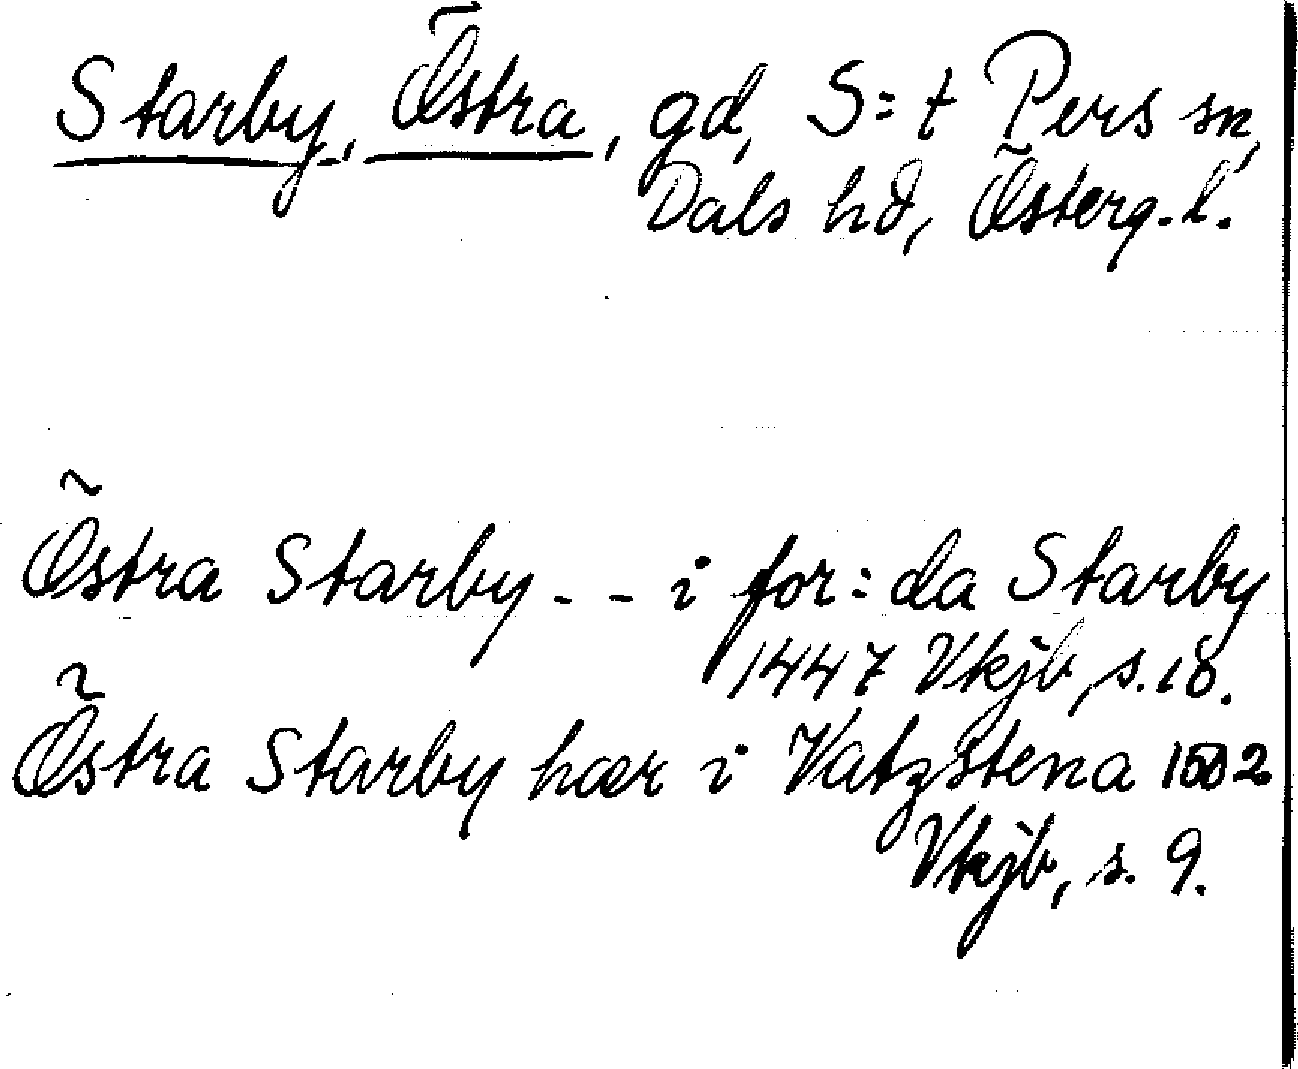 Starby, Östra, gd, S:t Pers sn,
Dals hd, Österg. l.
Östra Starby - - i for: da Starby
1447 Vkjb, s. 18.
Östra Starby hær i Vatzstena 1502
Vkjb, s. 9.